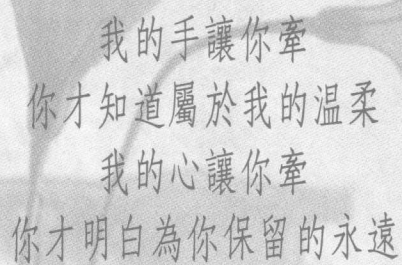 我的手讓你牽
你才知道屬於我的温柔
我的心讓你牽
你才明白為你保留的永遠